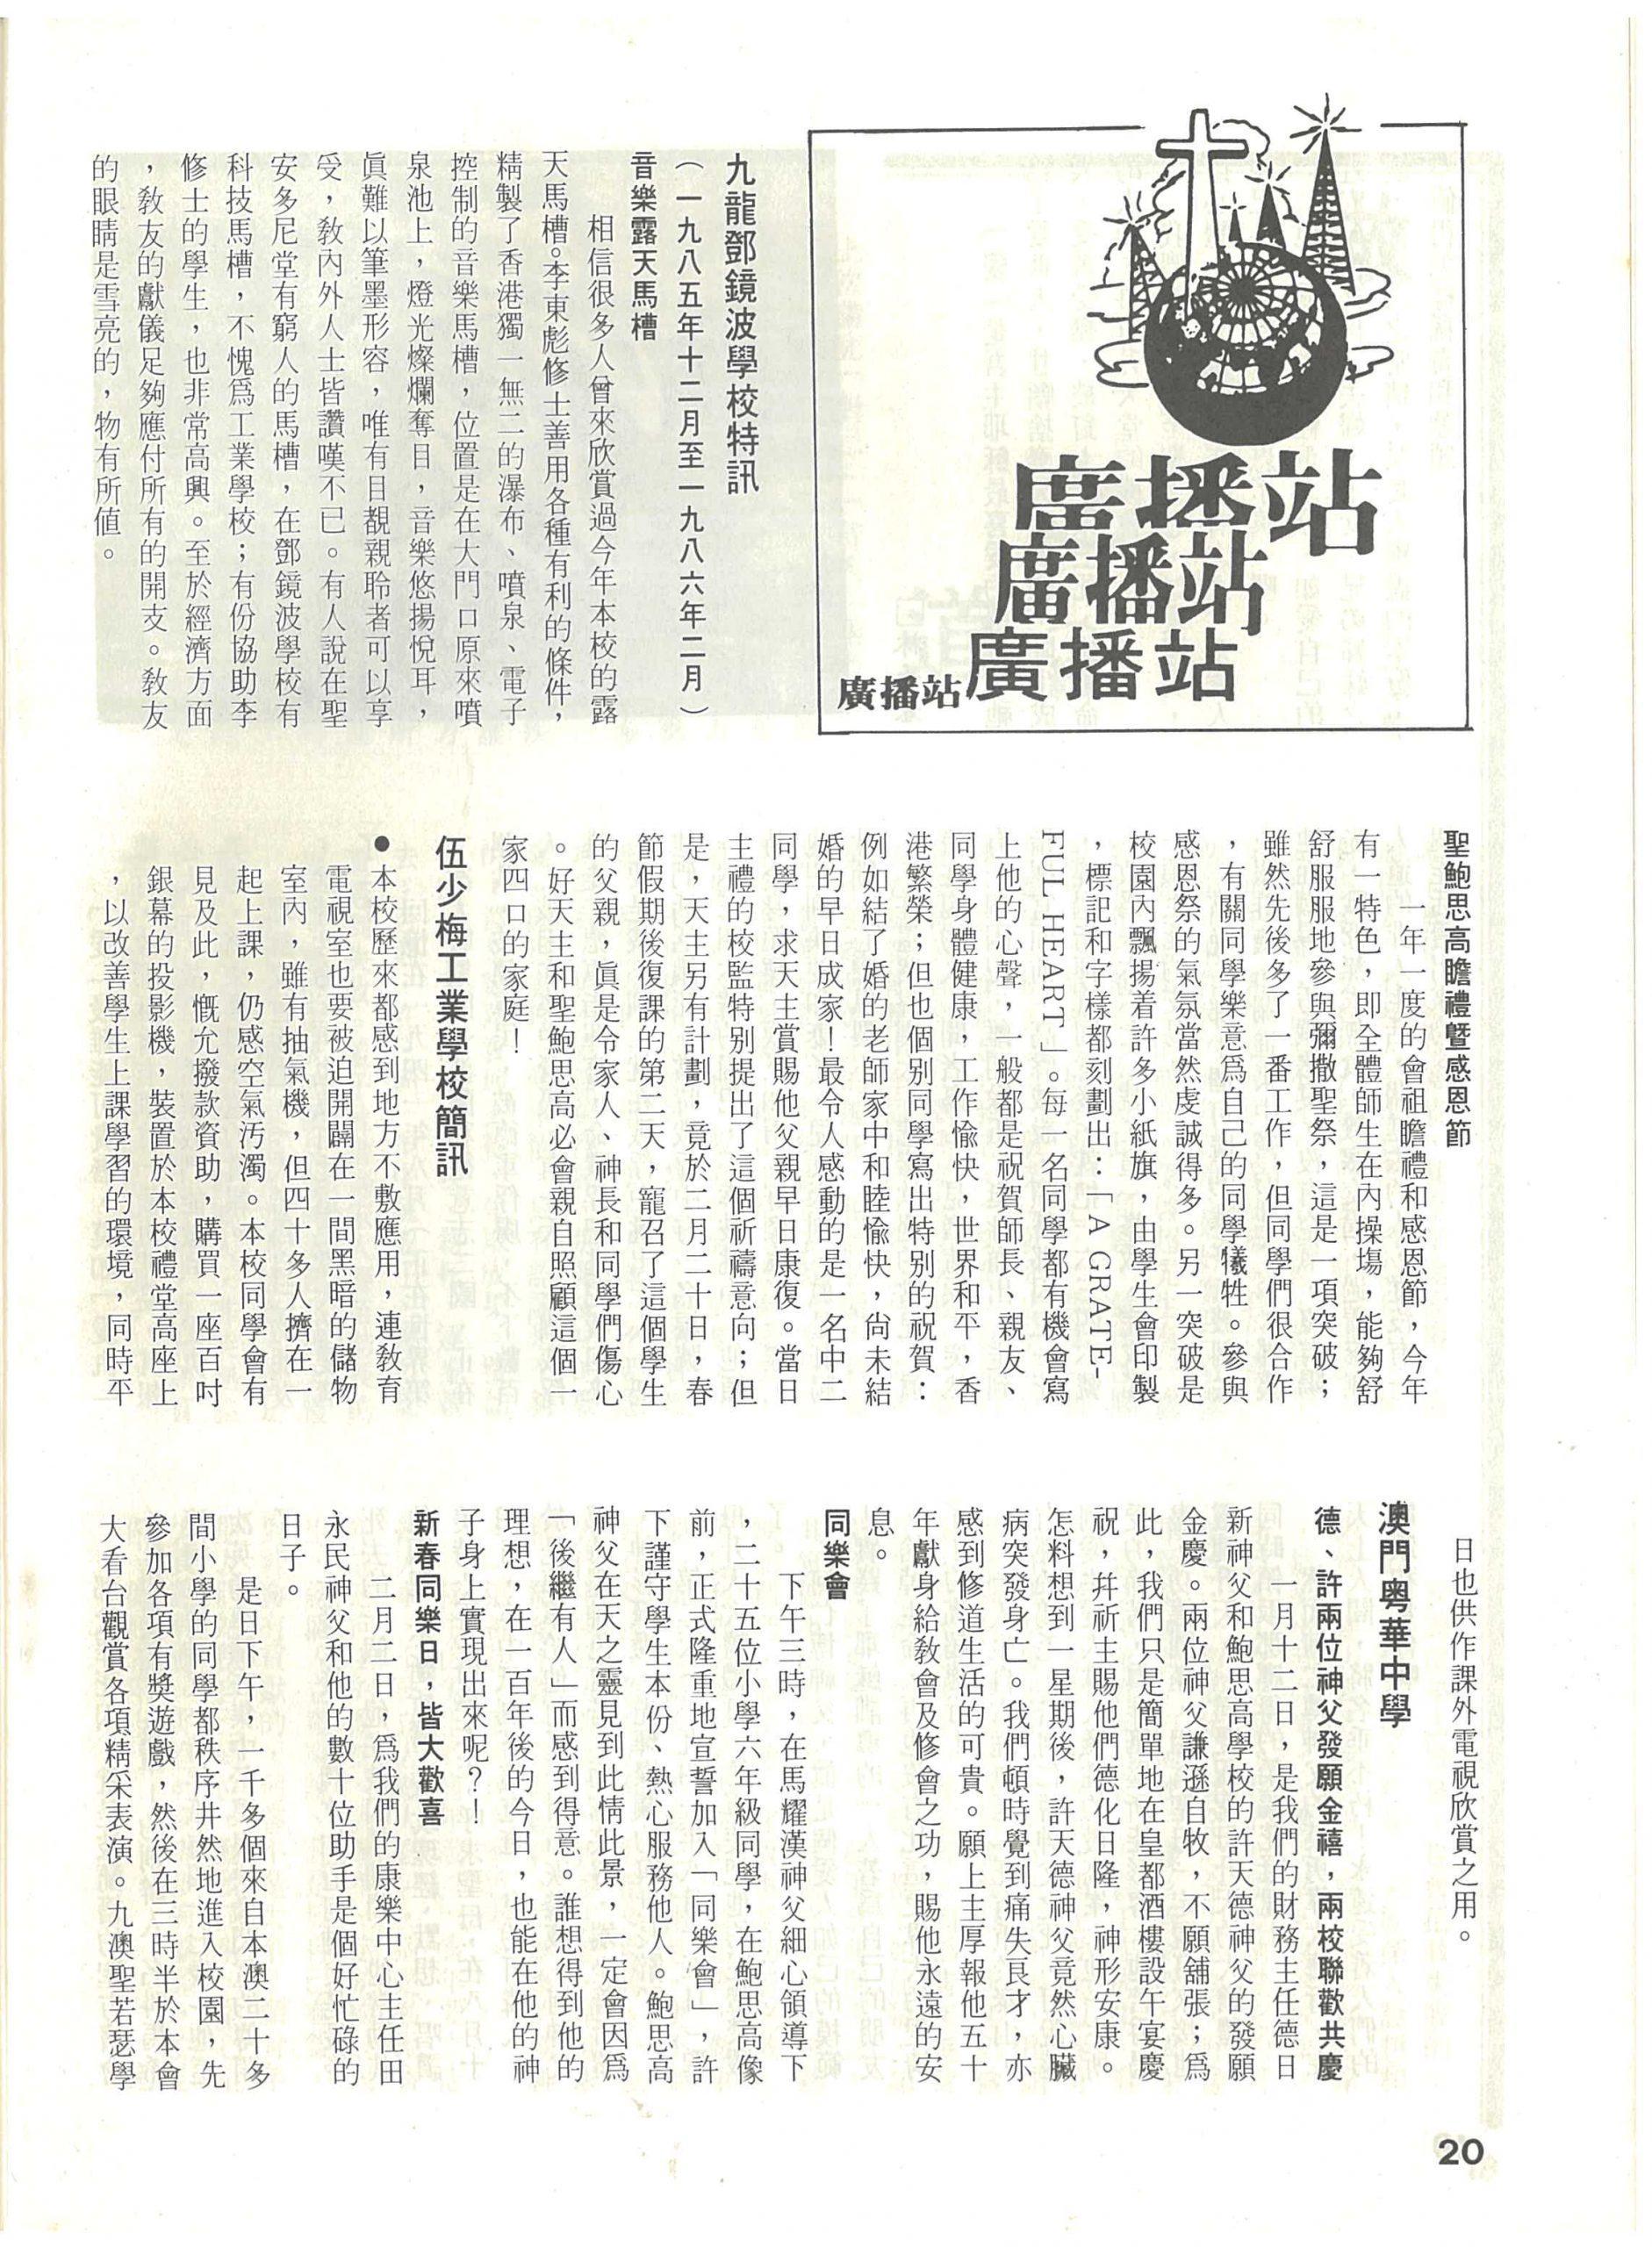 廣播站
廣播站
廣播站
廣播站
九龍鄧鏡波學校特訊
(一九八五年十二月至一九八六年二月)
音樂露天馬槽
相信很多人曾來欣賞過今年本校的露
天馬槽。李東彪修士善用各種有利的條件，
精製了香港獨一無二的瀑布、噴泉、電子
控制的音樂馬槽，位置是在大門口原來噴
泉池上，燈光燦爛奪目，音樂悠揚悅耳，
眞難以筆墨形容，唯有目覩親聆者可以享
受，敎內外人士皆讚嘆不已。有人說在聖
安多尼堂有窮人的馬槽，在鄧鏡波學校有
科技馬槽，不愧爲工業學校；有份協助李
修士的學生，也非常高興。至於經濟方面
，敎友的獻儀足夠應付所有的開支。敎友
的眼睛是雪亮的，物有所値。
聖鮑思高瞻禮暨感恩節
一年一度的會祖瞻禮和感恩節，今年
有一特色，即全體師生在內操塲，能夠舒
舒服服地參與彌撒聖祭，這是一項突破；
雖然先後多了一番工作，但同學們很合作
，有關同學樂意爲自己的同學犧牲。參與
感恩祭的氣氛當然虔誠得多。另一突破是
校園內飄揚着許多小紙旗，由學生會印製
，標記和字樣都刻劃出：「A GRATE-
FUL HEART」。每一名同學都有機會寫
上他的心聲，一般都是祝賀師長、親友、
同學身體健康，工作愉快，世界和平，香
港繁榮；但也個別同學寫出特別的祝賀：
例如結了婚的老師家中和睦愉快，尙未結
婚的早日成家！最令人感動的是一名中二
同學，求天主賞賜他父親早日康復。當日
主禮的校監特別提出了這個祈禱意向；但
是，天主另有計劃，竟於二月二十日，春
節假期後復課的第二天，寵召了這個學生
的父親，眞是令家人、神長和同學們傷心
。好天主和聖鮑思高必會親自照顧這個一
家四口的家庭！
伍少梅工業學校簡訊
●本校歷來都感到地方不敷應用，連敎育
電視室也要被迫開闢在一間黑暗的儲物
室內，雖有抽氣機，但四十多人擠在一
起上課，仍感空氣汚濁。本校同學會有
見及此，慨允撥款資助，購買一座百吋
銀幕的投影機，裝置於本校禮堂高座上
，以改善學生上課學習的環境，同時平
日也供作課外電視欣賞之用。
澳門粤華中學
德、許兩位神父發願金禧，兩校聯歡共慶
一月十二日，是我們的財務主任德日
新神父和鮑思高學校的許天德神父的發願
金慶。兩位神父謙遜自牧，不願舖張；爲
此，我們只是簡單地在皇都酒樓設午宴慶
祝，幷祈主賜他們德化日隆，神形安康。
怎料想到一星期後，許天德神父竟然心臟
病突發身亡。我們頓時覺到痛失良才，亦
感到修道生活的可貴。願上主厚報他五十
年獻身給敎會及修會之功，賜他永遠的安
息。
同樂會
下午三時，在馬耀漢神父細心領導下
，二十五位小學六年級同學，在鮑思高像
前，正式隆重地宣誓加入「同樂會」，許
下謹守學生本份、熱心服務他人。鮑思高
神父在天之靈見到此情此景，一定會因爲
「後繼有人」而感到得意。誰想得到他的
理想，在一百年後的今日，也能在他的神
子身上實現出來呢？！
新春同樂日，皆大歡喜
二月二日，爲我們的康樂中心主任田
永民神父和他的數十位助手是個好忙碌的
日子。
是日下午，一千多個來自本澳二十多
間小學的同學都秩序井然地進入校園，先
參加各項有獎遊戲，然後在三時半於本會
大看台觀賞各項精采表演。九澳聖若瑟學
20